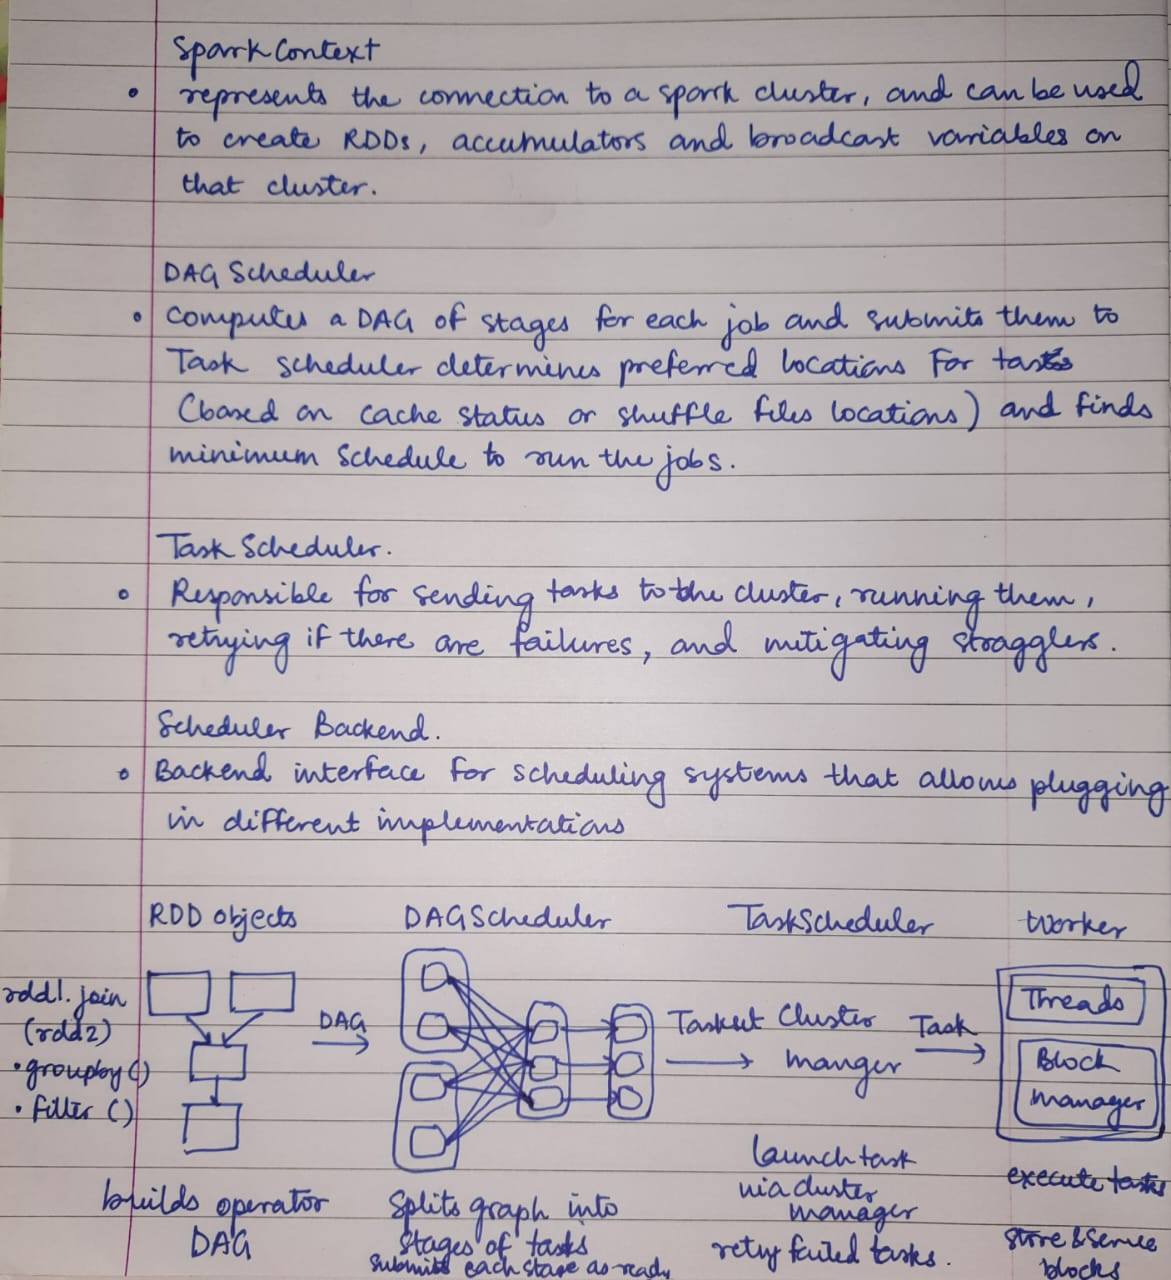 SparkContext
• represents the connection to a spark cluster, and can be used
to create RDDs, accumulators and broadcast variables on
that cluster.
DAG Scheduler
• Computes a DAG of stages for each job and submits them to
Task scheduler determines preferred locations For tasks
(based on cache status or shuffle files locations) and finds
minimum schedule to run the jobs.
Task Scheduler.
• Responsible for sending tasks to the cluster, running them,
retrying if there are failures, and mitigating stragglers.
Scheduler Backend.
• Backend interface for scheduling systems that allows plugging
in different implementations
RDD objects DAGScheduler TaskScheduler Worker
rdd1.join
(rdd2)
• groupby()
• filter ()
DAG
Taskset
Cluster
manger
Task
Threads
Block
Manager
builds operator
DAG
Splits graph into
stages of tasks
submits each stage as ready
launch task
via cluster
manager
retry failed tasks.
execute tasks
store & serve
blocks